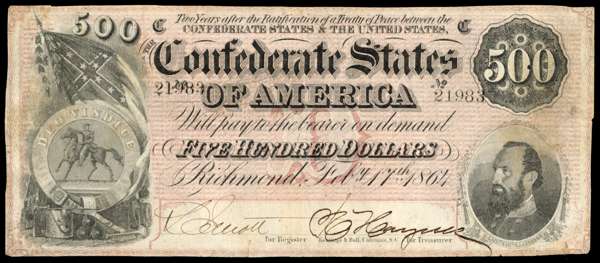 Two Years after the Ratification of a Treaty of Peace between the
CONFEDERATE STATES & THE UNITED STATES,
500 C THE C 500
Confederate States
No 21983 No 21983
OF AMERICA
DEO VINDICE
Will pay to the bearer on demand
FIVE HUNDRED DOLLARS
Richmond, Feby. 17th 1864
for Register Keatinge & Ball, Columbia, S.C. for Treasurer